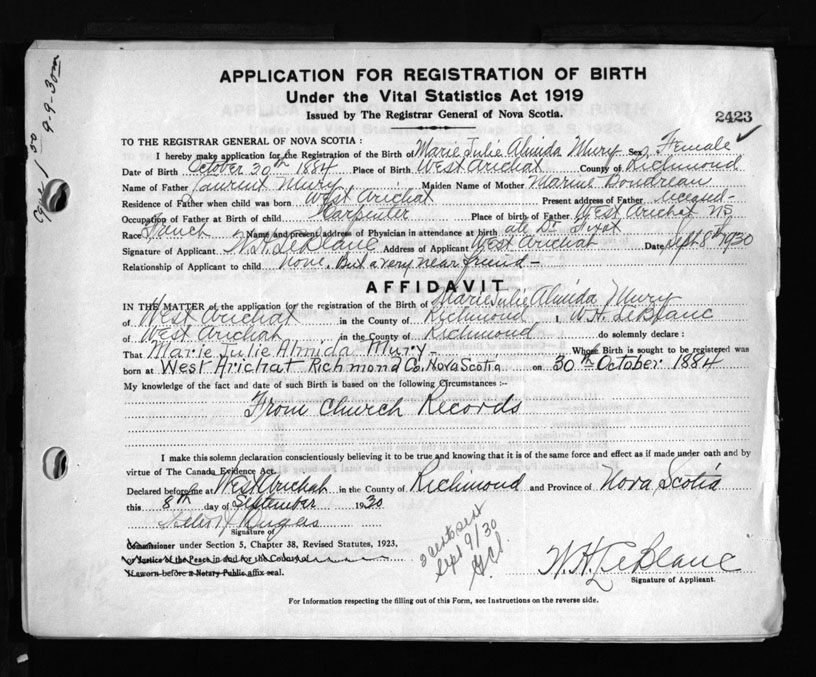 APPLICATION FOR REGISTRATION OF BIRTH
Under the Vital Statistics Act 1919
Issued by The Registrar General of Nova Scotia.
2423
9-9-30
TO THE REGISTRAR GENERAL OF NOVA SCOTIA :
I hereby make application for the Registration of the Birth of Marie Julie Almida Mury Sex Female
Date of Birth October 30th 1884 Place of Birth West Arichat County of Richmond
Name of Father Laurent Mury Maiden Name of Mother Boudreau
Residence of Father when child was born West Arichat Present address of Father
Occupation of Father at Birth of child Carpenter Place of birth of Father West Arichat NS
Race French Name and present address of Physician in attendance at birth Dr
Signature of Applicant W.H. LeBlanc Address of Applicant West Arichat Date Sept 8th 1930
Relationship of Applicant to child None. But a very near friend -
AFFIDAVIT
IN THE MATTER of the application for the registration of the Birth of Marie Julie Almida Mury
of West Arichat in the County of Richmond I, W.H. LeBlanc
of West Arichat in the County of Richmond do solemnly declare :
That Marie Julie Almida Mury - Whose Birth is sought to be registered was
born at West Arichat Richmond Co. Nova Scotia on 30th October 1884
My knowledge of the fact and date of such Birth is based on the following Circumstances :-
From Church Records
I make this solemn declaration conscientiously believing it to be true and knowing that it is of the same force and effect as if made under oath and by
virtue of The Canada Evidence Act.
Declared before me at West Arichat in the County of Richmond and Province of Nova Scotia
this 8th day of September 1930
Dugas
Signature of
Commissioner under Section 5, Chapter 38, Revised Statutes, 1923,
or Justice of the Peace in and for the County of
If sworn before a Notary Public affix seal.
Sept 9/30
W.H. LeBlanc
Signature of Applicant.
For Information respecting the filling out of this Form, see Instructions on the reverse side.